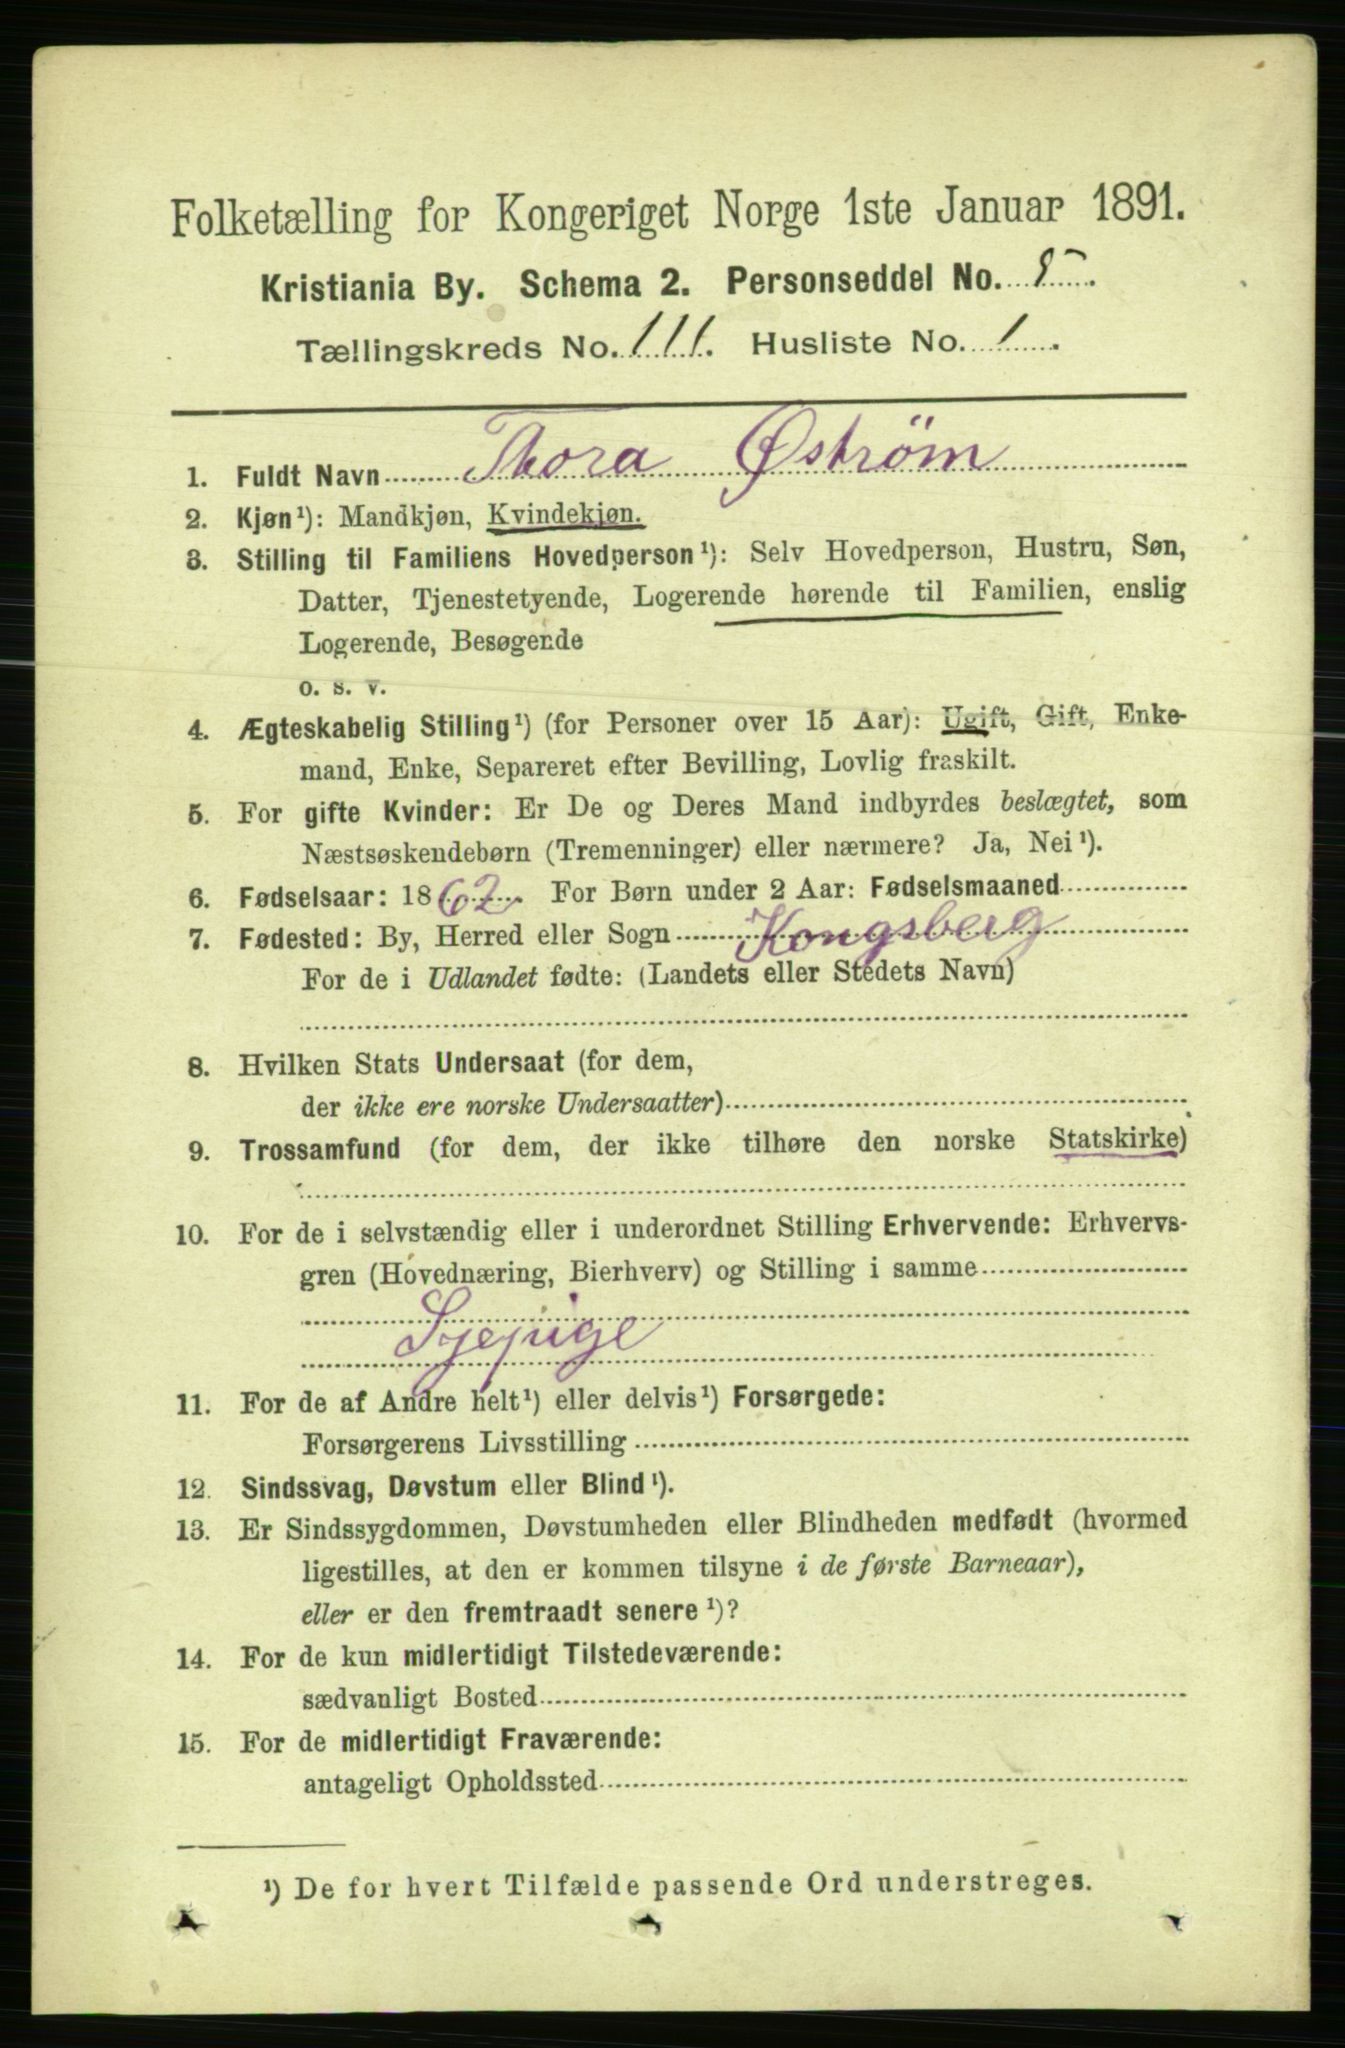 Folketælling for Kongeriget Norge 1ste Januar 1891.
Kristiania By. Schema 2. Personseddel No. 5.
Tællingskreds No. 111. Husliste No. 1.
1. Fuldt Navn Thora Øström
2. Kjøn¹): Mandkjøn, Kvindekjøn.
3. Stilling til Familiens Hovedperson¹): Selv Hovedperson, Hustru, Søn,
Datter, Tjenestetyende, Logerende hørende til Familien, enslig
Logerende, Besøgende
o. s. v.
4. Ægteskabelig Stilling¹) (for Personer over 15 Aar): Ugift, Gift, Enke-
mand, Enke, Separeret efter Bevilling, Lovlig fraskilt.
5. For gifte Kvinder: Er De og Deres Mand indbyrdes beslægtet, som
Næstsøskendebørn (Tremenninger) eller nærmere? Ja, Nei¹).
6. Fødselsaar: 1862. For Børn under 2 Aar: Fødselsmaaned
7. Fødested: By, Herred eller Sogn Kongsberg
For de i Udlandet fødte: (Landets eller Stedets Navn)
8. Hvilken Stats Undersaat (for dem,
der ikke ere norske Undersaatter)
9. Trossamfund (for dem, der ikke tilhøre den norske Statskirke)
10. For de i selvstændig eller i underordnet Stilling Erhvervende: Erhvervs-
gren (Hovednæring, Bierhverv) og Stilling i samme
Syepige
11. For de af Andre helt¹) eller delvis¹) Forsørgede:
Forsørgerens Livsstilling
12. Sindssvag, Døvstum eller Blind¹).
13. Er Sindssygdommen, Døvstumheden eller Blindheden medfødt (hvormed
ligestilles, at den er kommen tilsyne i de første Barneaar),
eller er den fremtraadt senere¹)?
14. For de kun midlertidigt Tilstedeværende:
sædvanligt Bosted
15. For de midlertidigt Fraværende:
antageligt Opholdssted
¹) De for hvert Tilfælde passende Ord understreges.